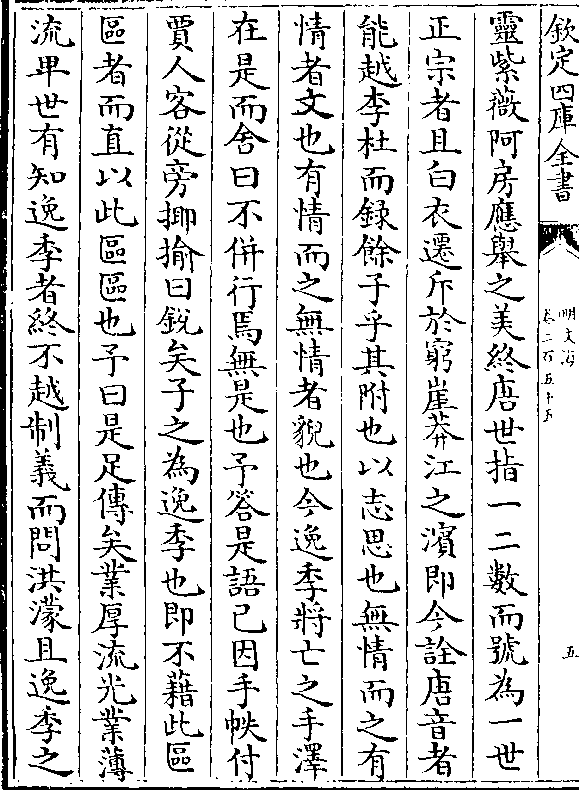 欽定四庫全書
明文海
卷二百五十五
五
靈紫薇阿房應舉之美終唐世指一二數而號為一世
正宗者且白衣遷斥於窮崖莽江之濱即今詮唐音者
能越李杜而録餘子乎其附也以志思也無情而之有
情者文也有情而之無情者貌也今逸季將亡之手澤
在是而舍曰不併行焉無是也予答是語已因手帙付
賈人客從旁揶揄曰銳矣子之為逸季也即不藉此區
區者而直以此區區也予曰是足傳矣業厚流光業薄
流卑世有知逸季者終不越制義而問洪濛且逸季之